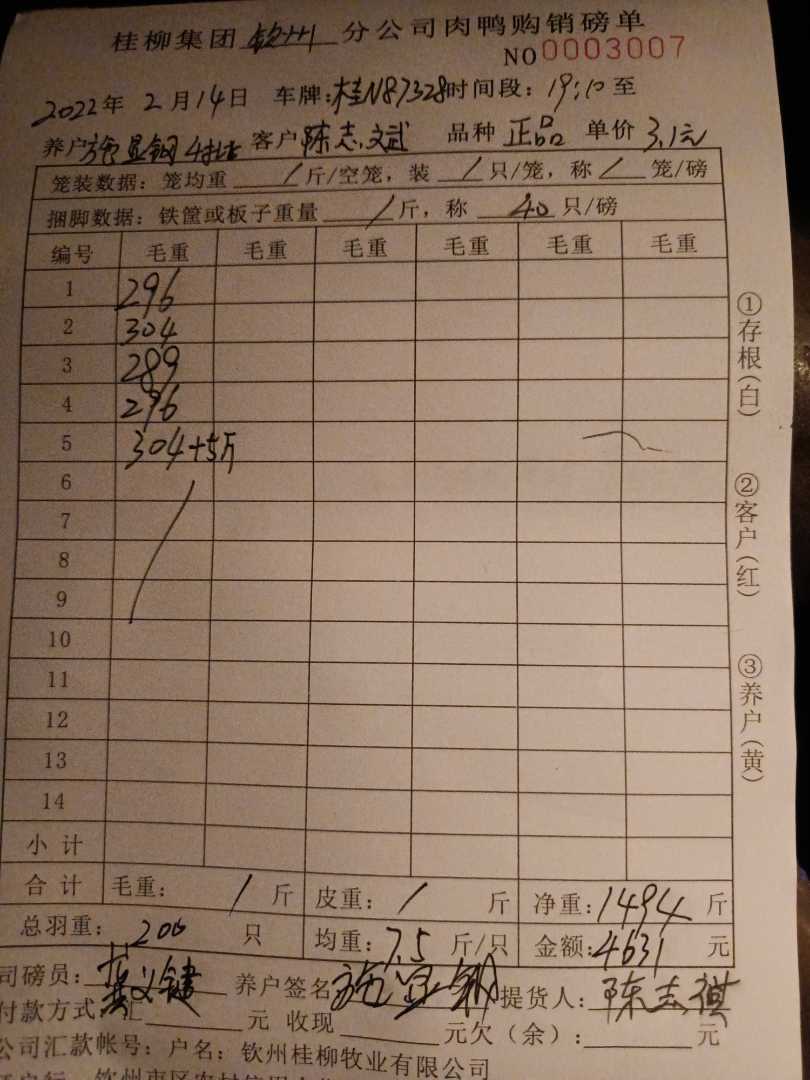 桂柳集团 钦州 分公司肉鸭购销磅单
NO 0003007
2022年 2月14日 车牌:桂N87328 时间段: 19:10 至
养户 施显钢 客户 陈志文武 品种 正品 单价 3.1元
笼装数据: 笼均重 / 斤/空笼, 装 / 只/笼, 称 / 笼/磅
捆脚数据: 铁筐或板子重量 / 斤, 称 40 只/磅
编号 毛重 毛重 毛重 毛重 毛重 毛重
1 296
2 304
3 289
4 296
5 304+5斤
6
7
8
9
10
11
12
13
14
小计
合计 毛重: / 斤 皮重: / 斤 净重: 1494 斤
总羽重: 200 只 均重: 7.5 斤/只 金额: 4631 元
司磅员: 义键 养户签名 施显钢 提货人: 陈志祺
付款方式 汇 元 收现 元欠(余): 元
公司汇款帐号: 户名: 钦州桂柳牧业有限公司
①存根(白)
②客户(红)
③养户(黄)